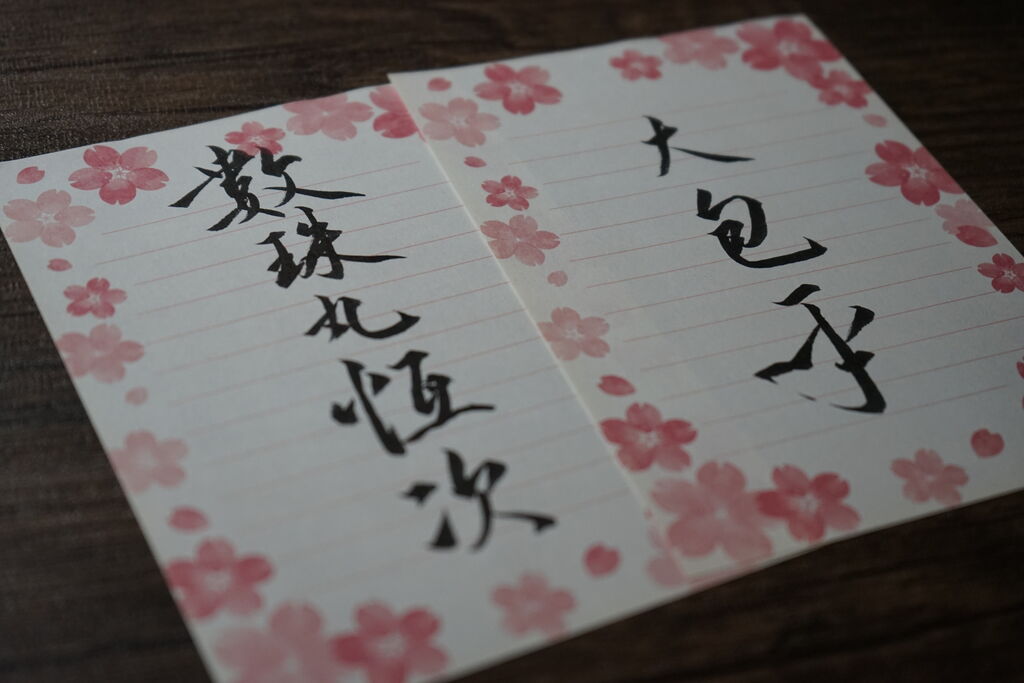 大包平
數珠丸恒次